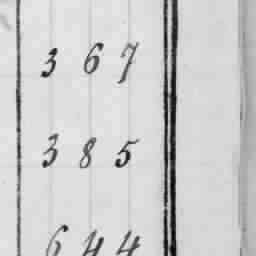 3 6 7
3 8 5
6 4 4